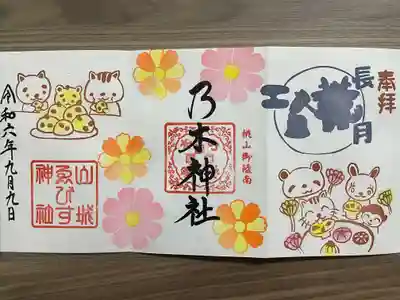 奉拝
長月
桃山御陵南
乃木神社
令和六年九月九日
山城
ゑびす
神社